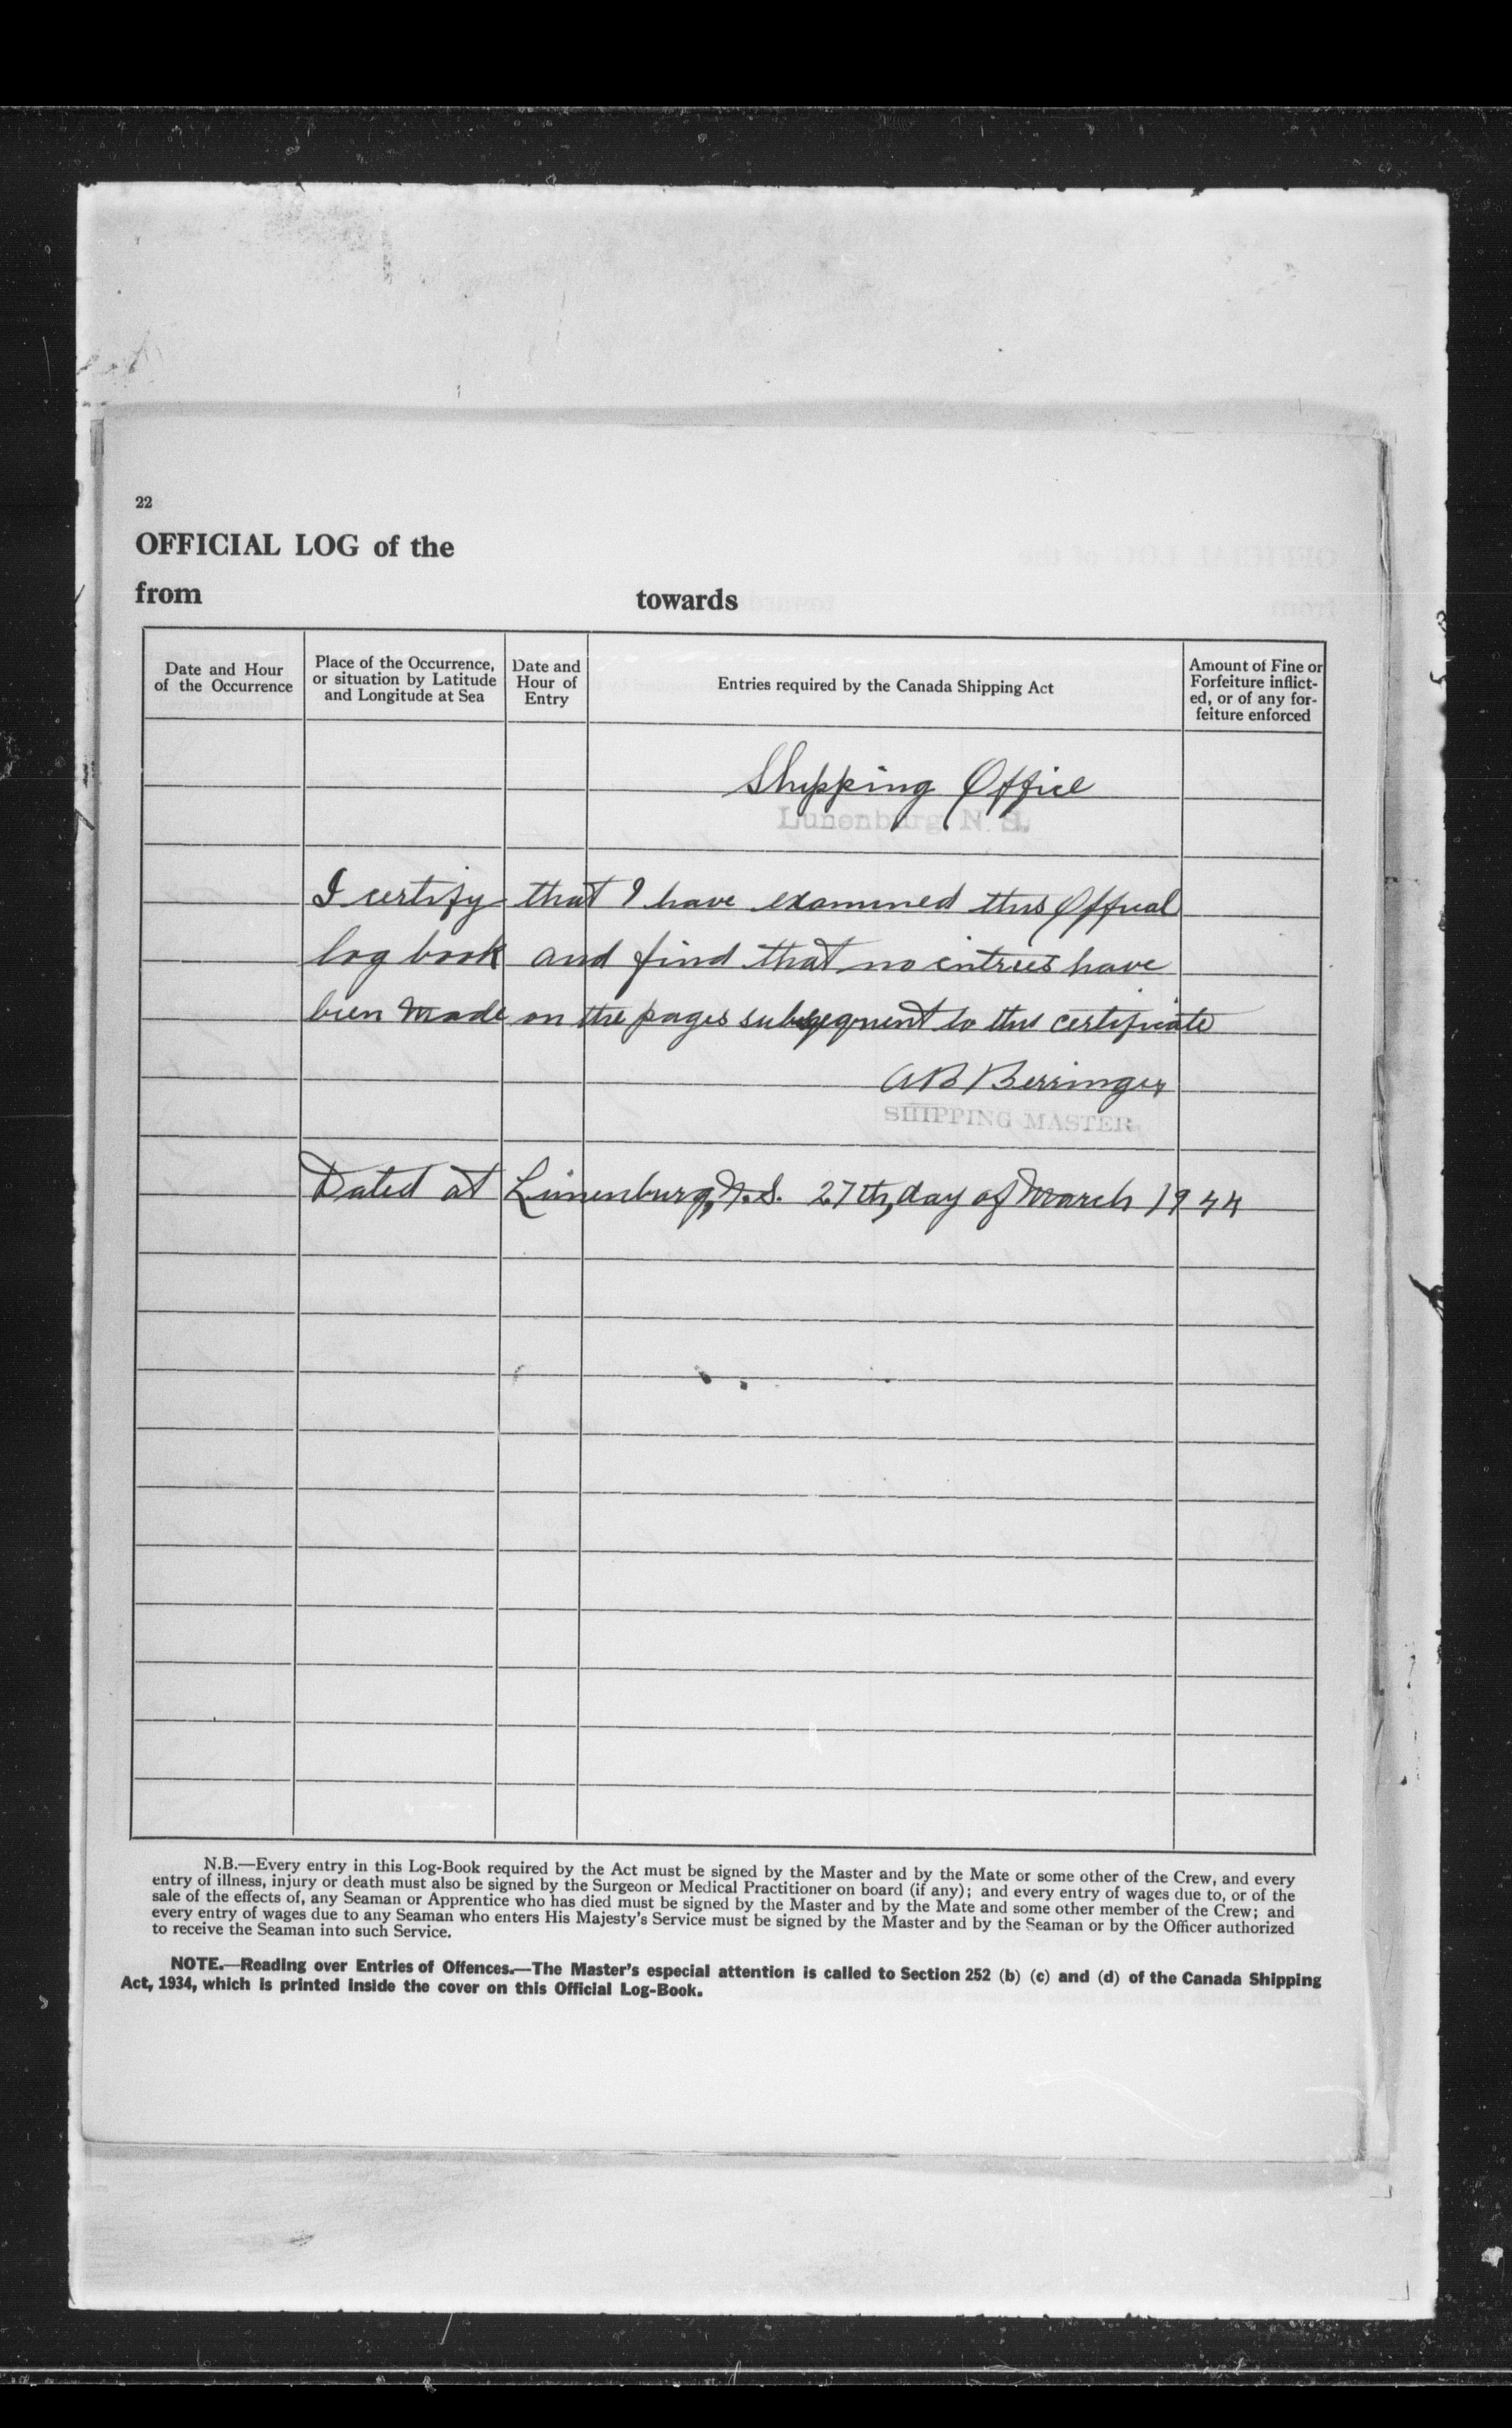 22
OFFICIAL LOG of the
from towards
Date and Hour
of the Occurrence
Place of the Occurrence,
or situation by Latitude
and Longitude at Sea
Date and
Hour of
Entry
Entries required by the Canada Shipping Act
Amount of Fine or
Forfeiture inflict-
ed, or of any for-
feiture enforced
Shipping Office
Lunenburg, N. S.
I certify that I have examined this Official
log book and find that no entries have
been made on the pages subsequent to this certificate
AB Berringer
SHIPPING MASTER
Dated at Lunenburg, N.S. 27th, day of March 1944
N.B.—Every entry in this Log-Book required by the Act must be signed by the Master and by the Mate or some other of the Crew, and every
entry of illness, injury or death must also be signed by the Surgeon or Medical Practitioner on board (if any); and every entry of wages due to, or of the
sale of the effects of, any Seaman or Apprentice who has died must be signed by the Master and by the Mate and some other member of the Crew; and
every entry of wages due to any Seaman who enters His Majesty's Service must be signed by the Master and by the Seaman or by the Officer authorized
to receive the Seaman into such Service.
NOTE.—Reading over Entries of Offences.—The Master's especial attention is called to Section 252 (b) (c) and (d) of the Canada Shipping
Act, 1934, which is printed inside the cover on this Official Log-Book.